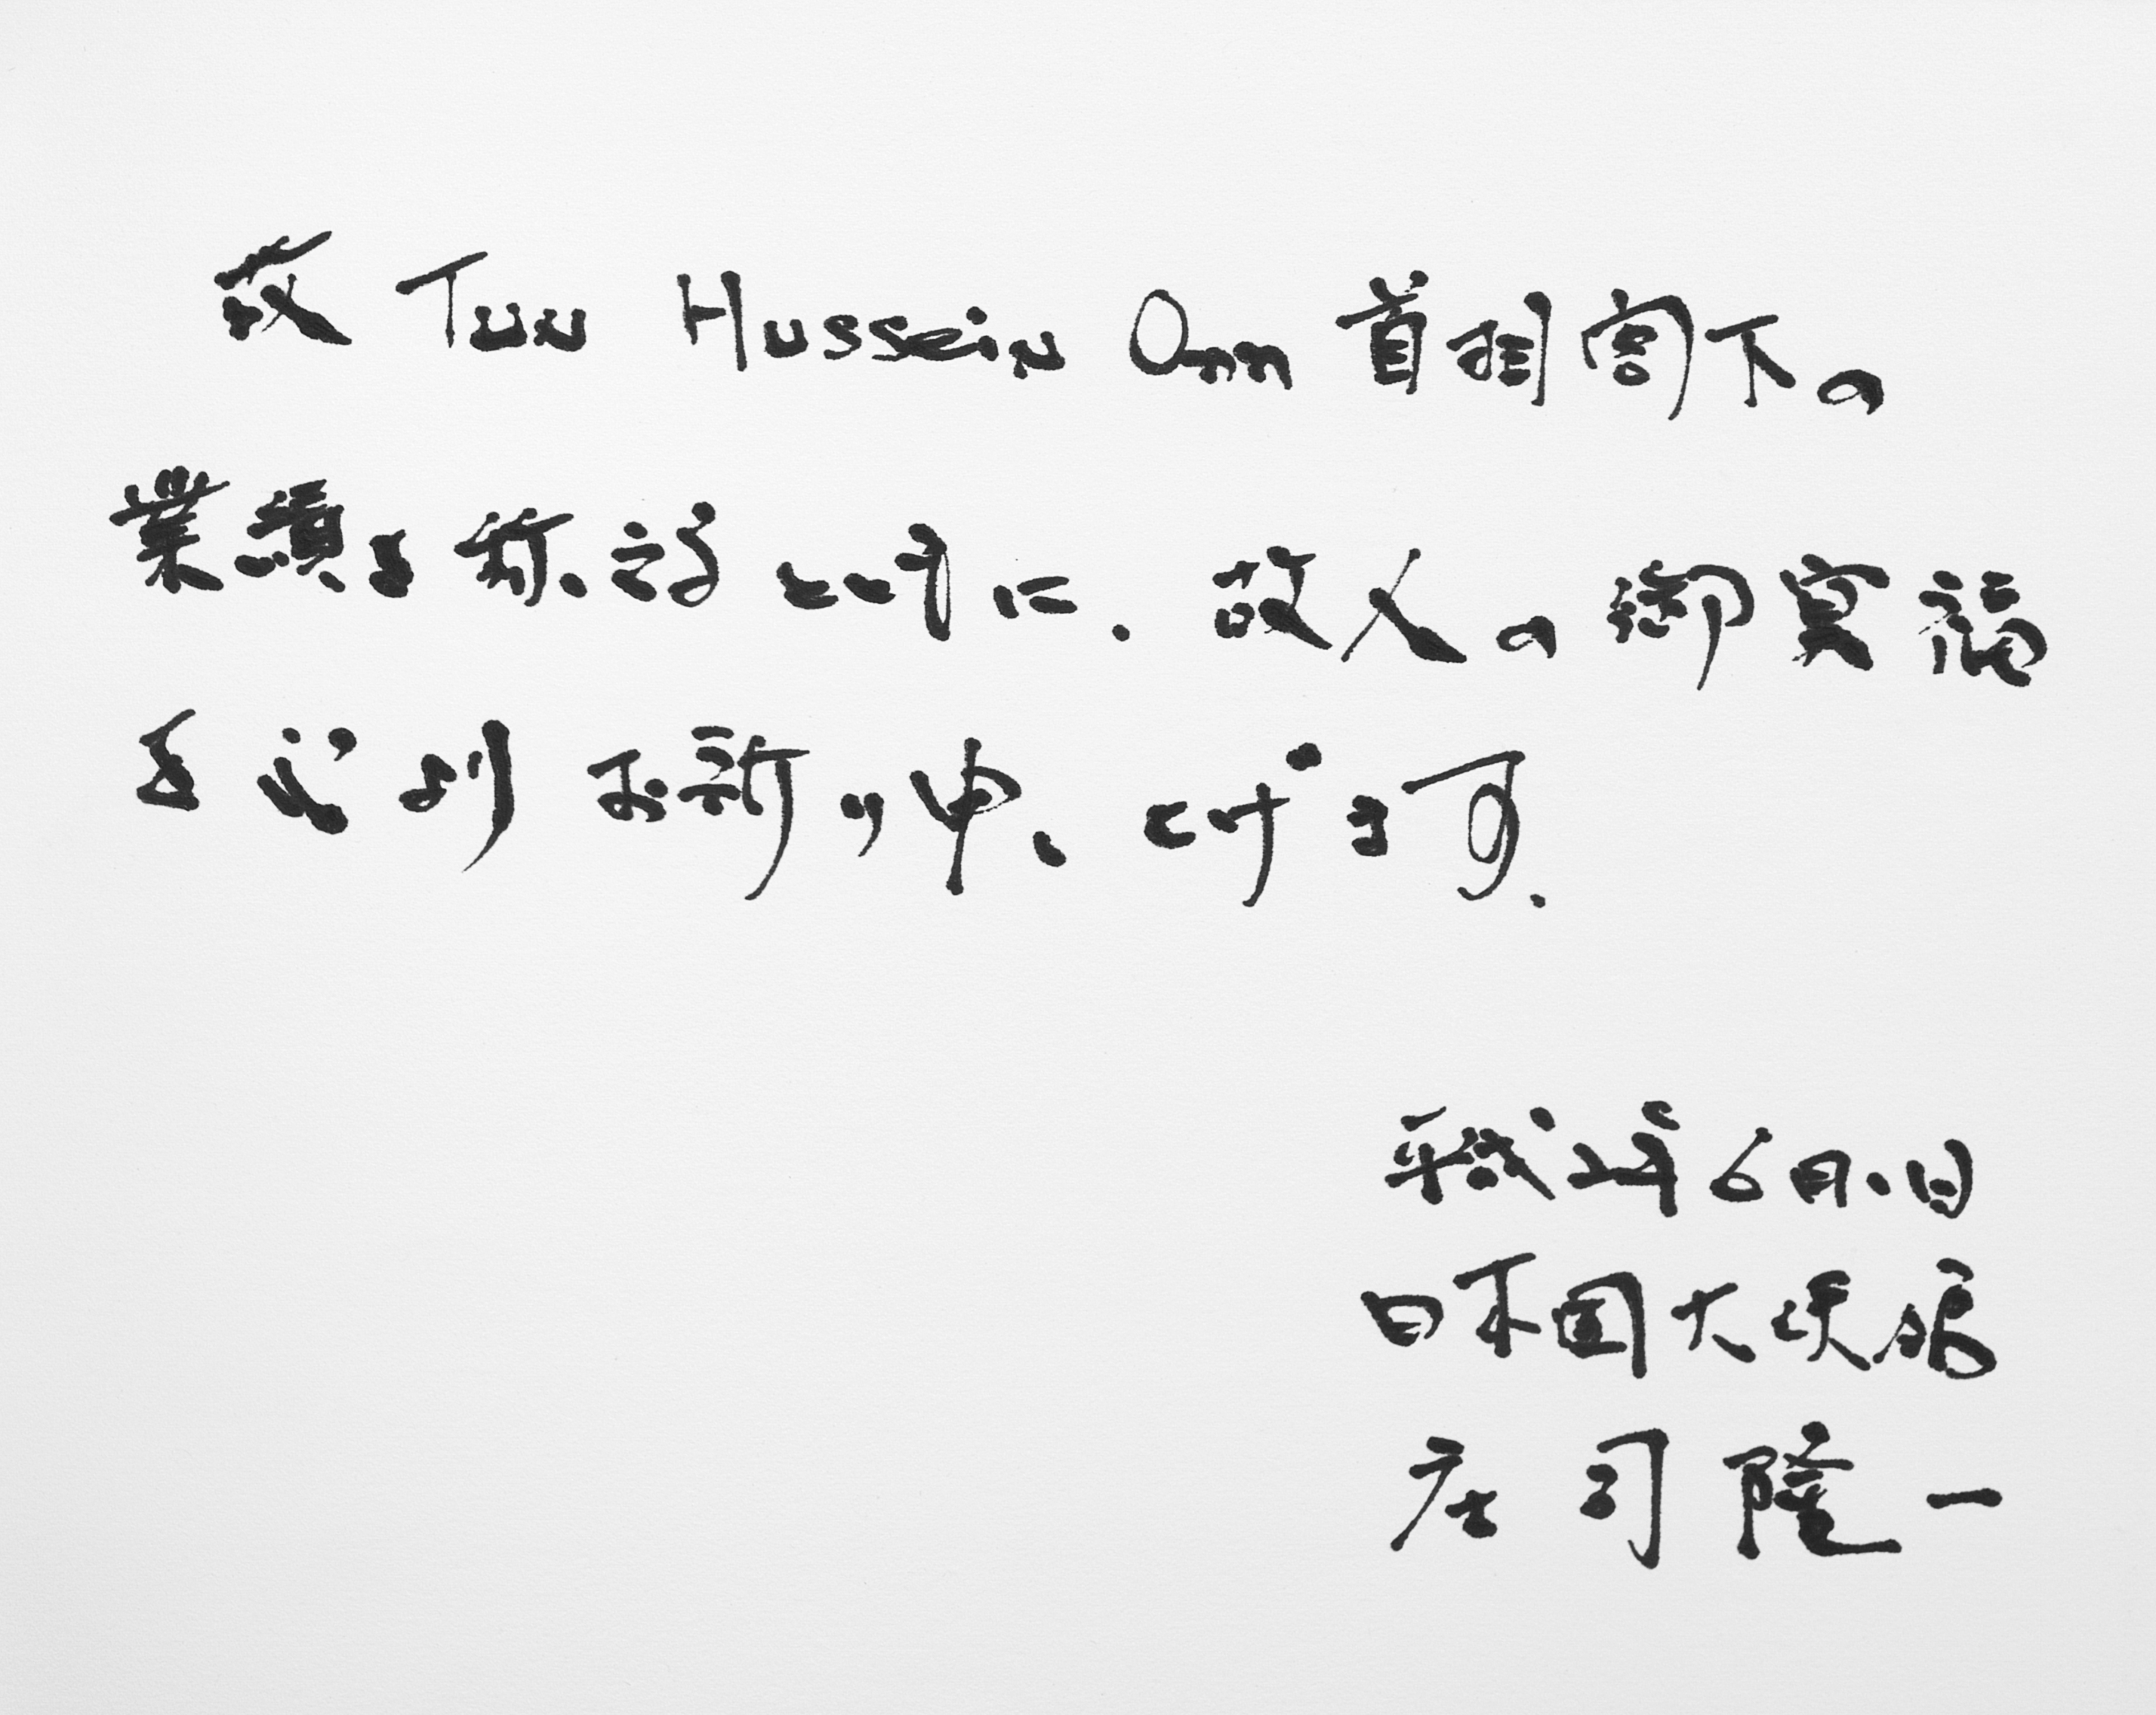 故 Tun Hussein Onn 首相閣下の
業績を称えるとともに. 故人の御冥福
を心よりお祈り申し上げます.
平成2年6月1日
日本国大使館
庄司隆一